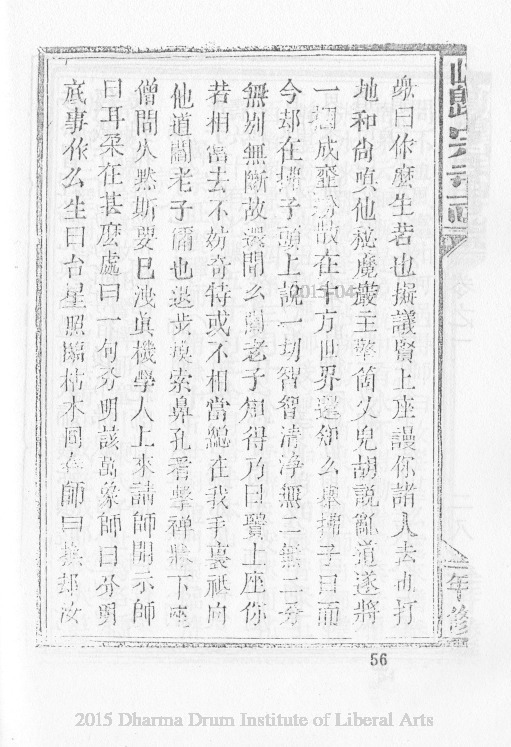 衆曰作麽生若也擬議賢上座謾你諸人去也打
地和尙嗔他秘魔巖主擎箇义兒胡說亂道遂將
一摑成虀粉散在十方世界還知么舉拂子曰而
今却在拂子頭上說一切智智清淨無二無二分
無別無斷故還聞么閻老子知得乃曰賢上座你
若相當去不妨奇特或不相當總在我手裏祇向
他道閻老子你也退步摸索鼻孔看擊禪牀下座
僧問久黙斯要已洩眞機學人上來請師開示師
曰耳朶在甚麽處曰一句分明該萬象師曰分明
底事作么生曰台星照臨枯木回春師曰換却汝
2015-04-
年修
56
2015 Dharma Drum Institute of Liberal Arts